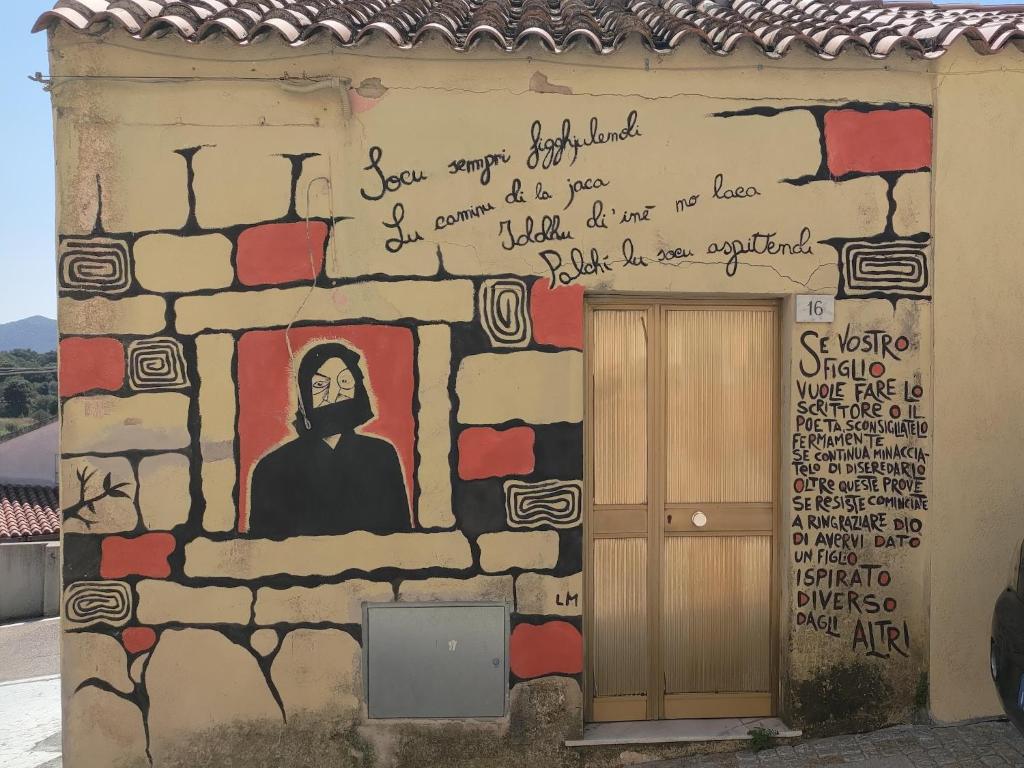 Socu sempri figghjulendi
Lu caminu di la jaca
Iddhu di 'inè no laca
Palchì lu socu aspittendi
16
SE VOSTRO
FIGLIO
VUOLE FARE LO
SCRITTORE O IL
POETA SCONSIGLIATELO
FERMAMENTE
SE CONTINUA MINACCIA-
TELO DI DISEREDARLO
OLTRE QUESTE PROVE
SE RESISTE COMINCIATE
A RINGRAZIARE DIO
DI AVERVI DATO
UN FIGLIO
ISPIRATO
DIVERSO
DAGLI ALTRI
LM